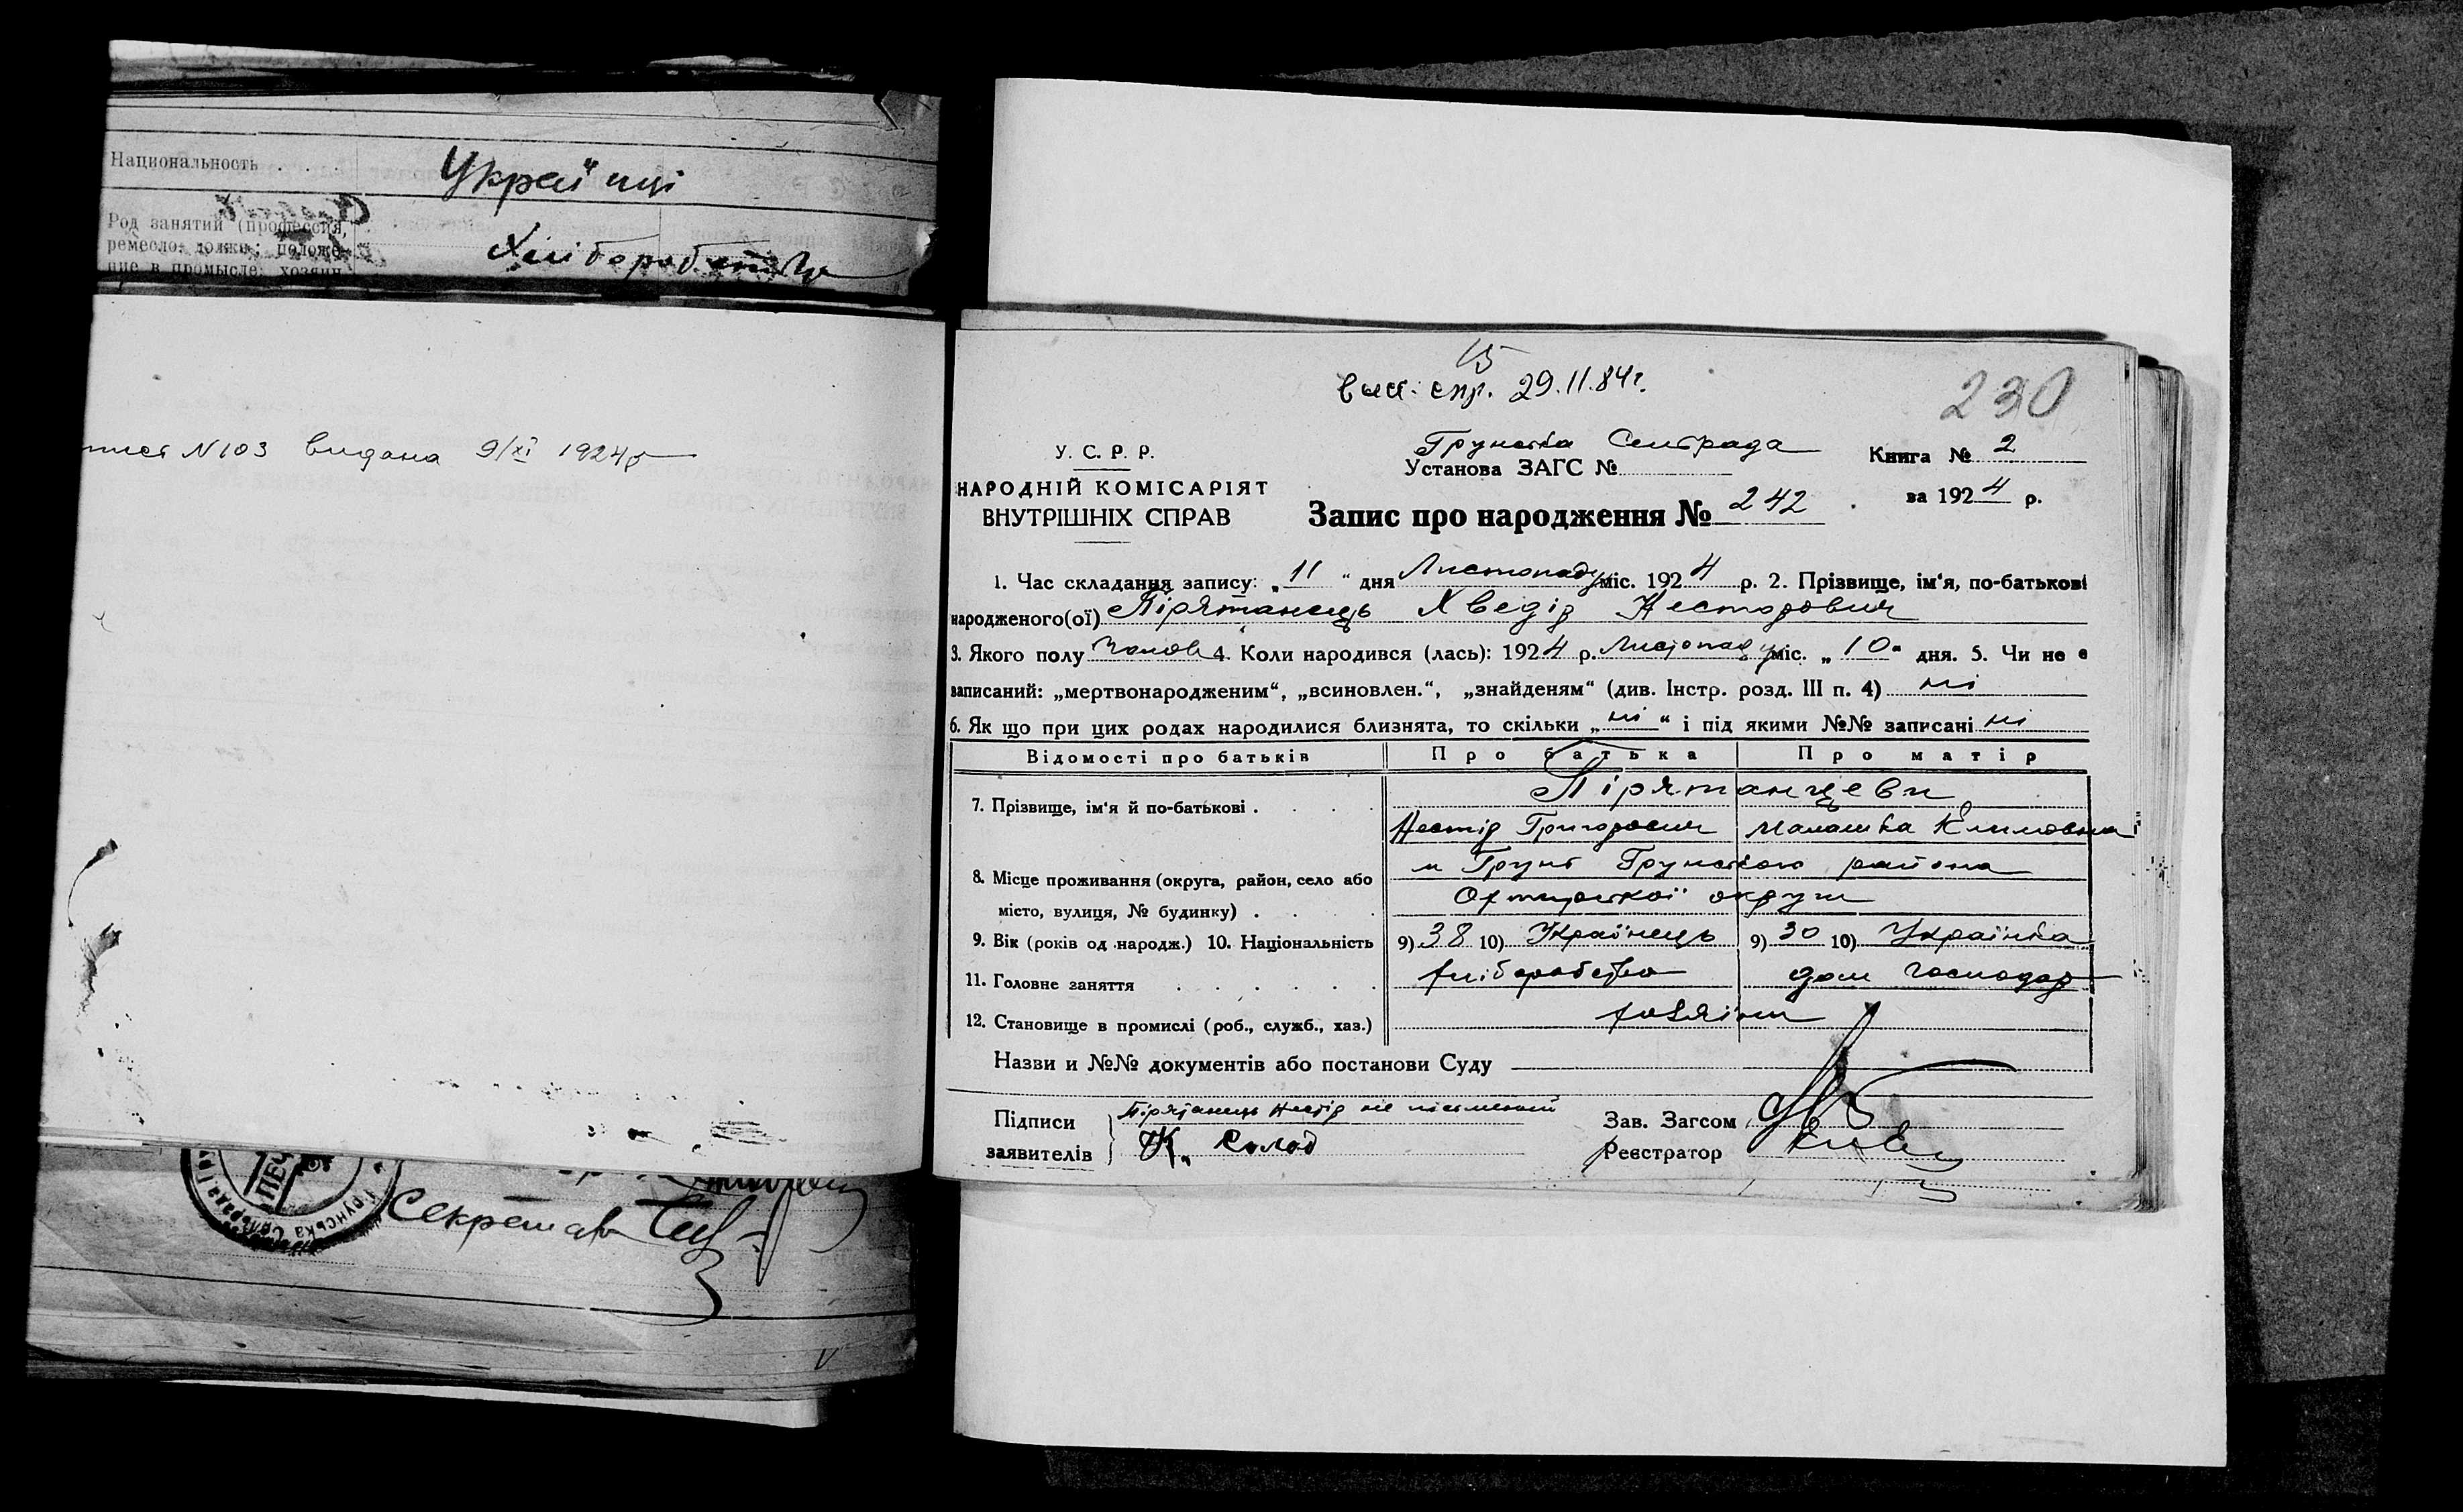 Национальность . . . Українці
Род занятий (профессия,
ремесло, должн.; положе-
ние в промысле: хозяин Хліборобство
N 103 видана 9/XI 1924 р
Секретар
15
выд. спр. 29.11.84 г.
230
У. С. Р. Р.
НАРОДНІЙ КОМІСАРІЯТ
ВНУТРІШНІХ СПРАВ
Грунська Сельрада
Установа ЗАГС №
Книга № 2
за 1924 р.
Запис про народження № 242
1. Час складання запису: „ 11 “ дня Листопаду міс. 1924 р. 2. Прізвище, ім'я, по-батькові
народженого(ої) Пірятанець Хведір Несторович
3. Якого полу Чолов 4. Коли народився (лась): 1924 р. Листопаду міс. „ 10 “ дня. 5. Чи не є
записаний: „мертвонародженим“, „всиновлен.“, „знайденям“ (див. Інстр. розд. III п. 4) ні
6. Як що при цих родах народилися близнята, то скільки „ ні “ і під якими №№ записані ні
Відомості про батьків Про батька Про матір
7. Прізвище, ім'я й по-батькові . . . . Пірятанцеви
Нестір Григорович Малашка Климовна
8. Місце проживання (округа, район, село або м Грунь Грунського района
місто, вулиця, № будинку) . . . . Охтирської округи
9. Вік (років од народж.) 10. Національність 9) 38 10) Українець 9) 30 10) Українка
11. Головне заняття . . . . . . хліборобство дом господар
12. Становище в промислі (роб., служб., хаз.) хазяїни
Назви и №№ документів або постанови Суду
Підписи Пірятанець Нестір не письменний
заявителів К. Солод
Зав. Загсом
Реєстратор